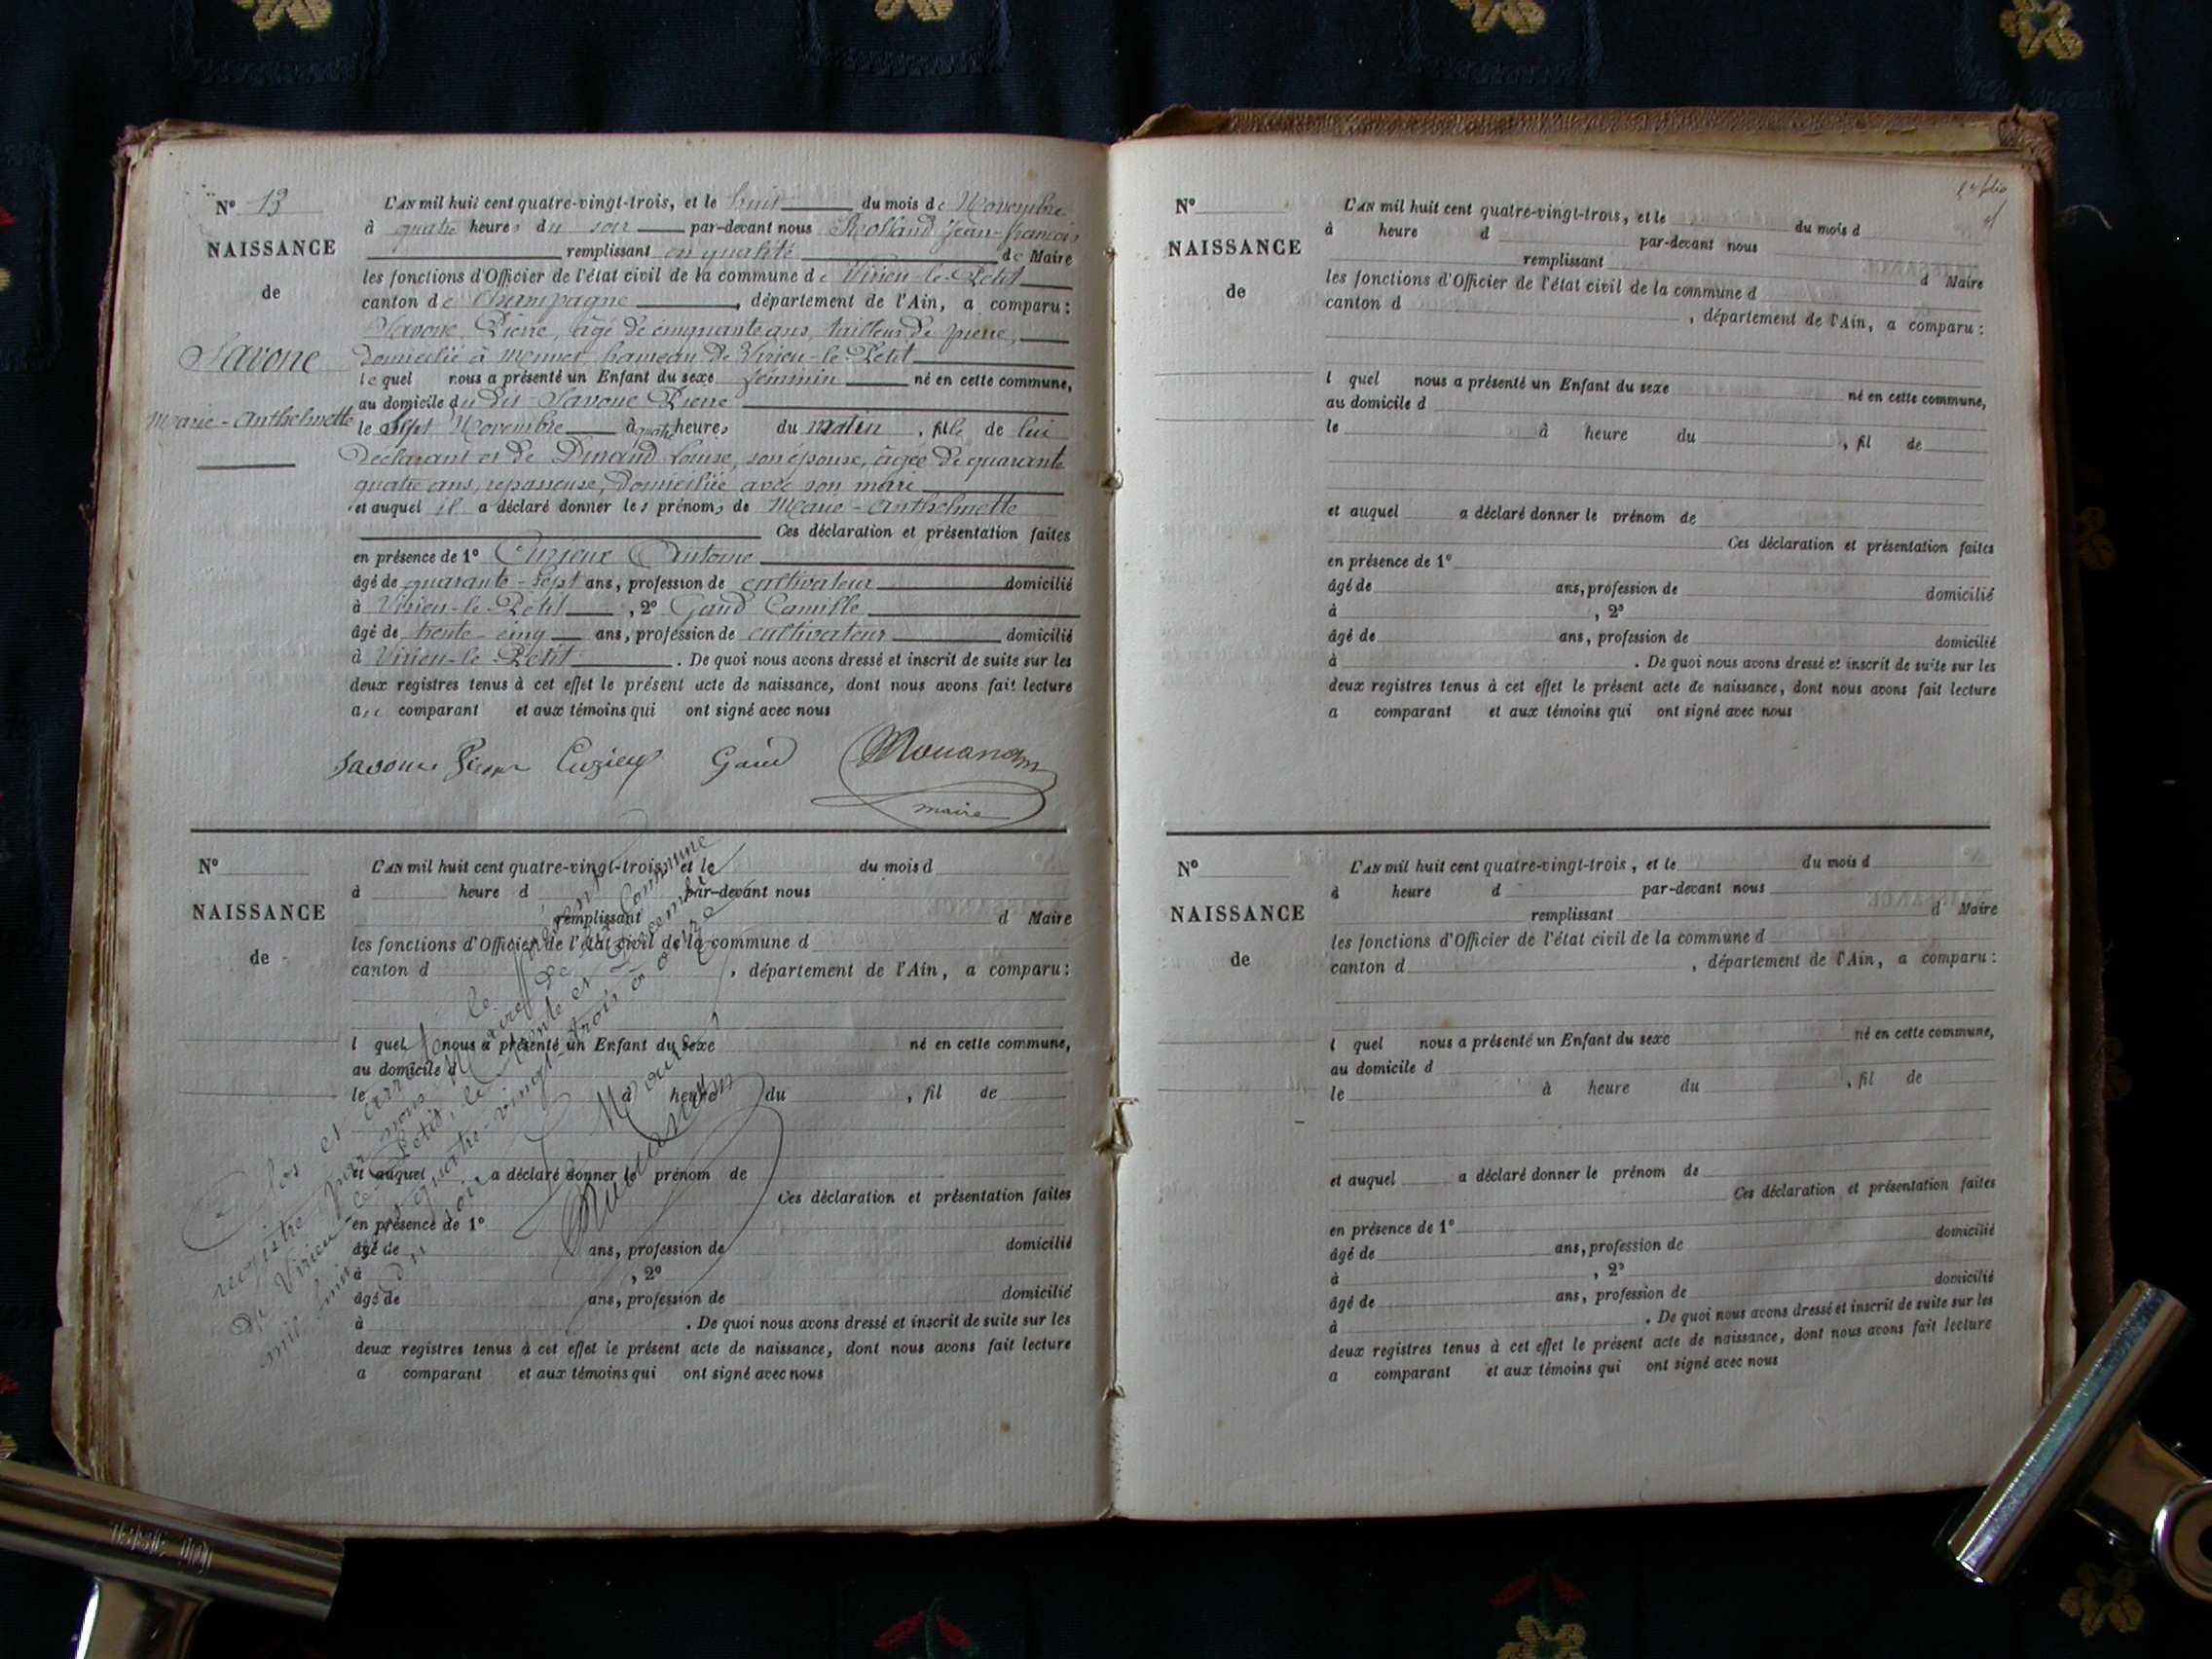 N° 13
NAISSANCE
de
Savone
Marie-Anthelmette
L'AN mil huit cent quatre-vingt-trois, et le huit du mois de Novembre
à quatre heures du soir par-devant nous Jean-François
remplissant en qualité de Maire
les fonctions d'Officier de l'état civil de la commune de Virieu-le-Petit
canton de Champagne, département de l'Ain, a comparu :
Savone Pierre, âgé de cinquante ans, tailleur de pierre,
domicilié à Monner hameau de Virieu-le-Petit
lequel nous a présenté un Enfant du sexe féminin né en cette commune,
au domicile du dit Savone Pierre
le sept Novembre à quatre heures du matin, fille de lui
déclarant et de Louise, son épouse, âgée de quarante
quatre ans, repasseuse, domiciliée avec son mari
et auquel il a déclaré donner les prénoms de Marie-Anthelmette
Ces déclaration et présentation faites
en présence de 1° Cuzieux Antoine
âgé de quarante-sept ans, profession de cultivateur domicilié
à Virieu-le-Petit, 2° Gaud Camille
âgé de trente-cinq ans, profession de cultivateur domicilié
à Virieu-le-Petit. De quoi nous avons dressé et inscrit de suite sur les
deux registres tenus à cet effet le présent acte de naissance, dont nous avons fait lecture
au comparant et aux témoins qui ont signé avec nous
Savone Pierre Cuzieux Gaud
maire
N°
NAISSANCE
de
L'AN mil huit cent quatre-vingt-trois, et le du mois d
à heure d par-devant nous
remplissant d Maire
les fonctions d'Officier de l'état civil de la commune d
canton d , département de l'Ain, a comparu :
l quel nous a présenté un Enfant du sexe né en cette commune,
au domicile d
le à heure du , fil de
et auquel a déclaré donner le prénom de
Ces déclaration et présentation faites
en présence de 1°
âgé de ans, profession de domicilié
à , 2°
âgé de ans, profession de domicilié
à . De quoi nous avons dressé et inscrit de suite sur les
deux registres tenus à cet effet le présent acte de naissance, dont nous avons fait lecture
a comparant et aux témoins qui ont signé avec nous
Clos et arrêté le présent
registre par nous Maire de la Commune
de Virieu-le-Petit, le trente et un Décembre
mil huit cent quatre-vingt-trois à
du soir
folio
N°
NAISSANCE
de
L'AN mil huit cent quatre-vingt-trois, et le du mois d
à heure d par-devant nous
remplissant d Maire
les fonctions d'Officier de l'état civil de la commune d
canton d , département de l'Ain, a comparu :
l quel nous a présenté un Enfant du sexe né en cette commune,
au domicile d
le à heure du , fil de
et auquel a déclaré donner le prénom de
Ces déclaration et présentation faites
en présence de 1°
âgé de ans, profession de domicilié
à , 2°
âgé de ans, profession de domicilié
à . De quoi nous avons dressé et inscrit de suite sur les
deux registres tenus à cet effet le présent acte de naissance, dont nous avons fait lecture
a comparant et aux témoins qui ont signé avec nous
N°
NAISSANCE
de
L'AN mil huit cent quatre-vingt-trois, et le du mois d
à heure d par-devant nous
remplissant d Maire
les fonctions d'Officier de l'état civil de la commune d
canton d , département de l'Ain, a comparu :
l quel nous a présenté un Enfant du sexe né en cette commune,
au domicile d
le à heure du , fil de
et auquel a déclaré donner le prénom de
Ces déclaration et présentation faites
en présence de 1°
âgé de ans, profession de domicilié
à , 2°
âgé de ans, profession de domicilié
à . De quoi nous avons dressé et inscrit de suite sur les
deux registres tenus à cet effet le présent acte de naissance, dont nous avons fait lecture
a comparant et aux témoins qui ont signé avec nous